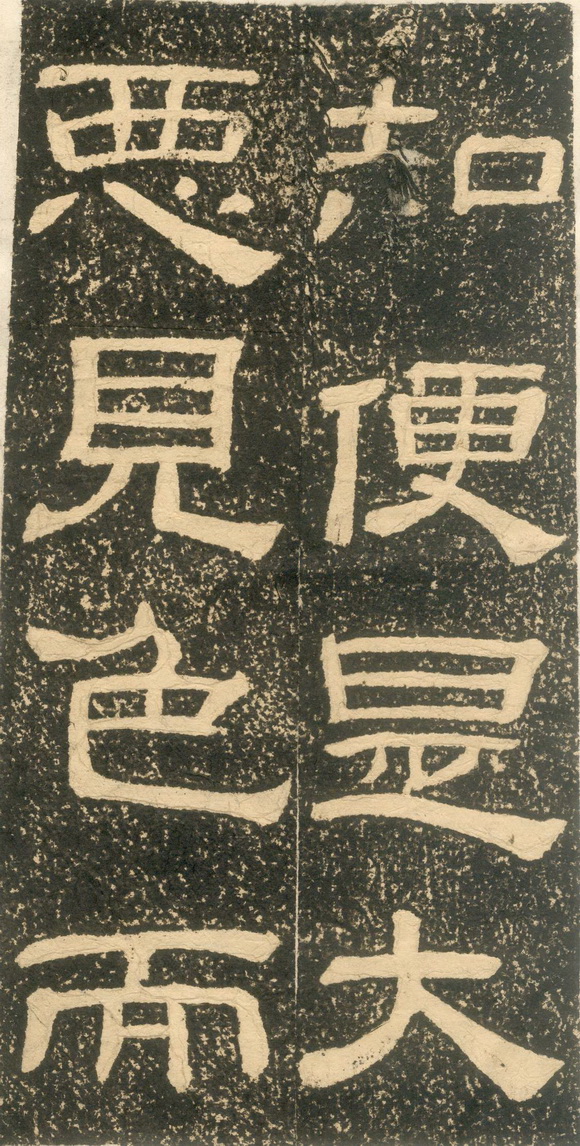 知便是大
悪見色而